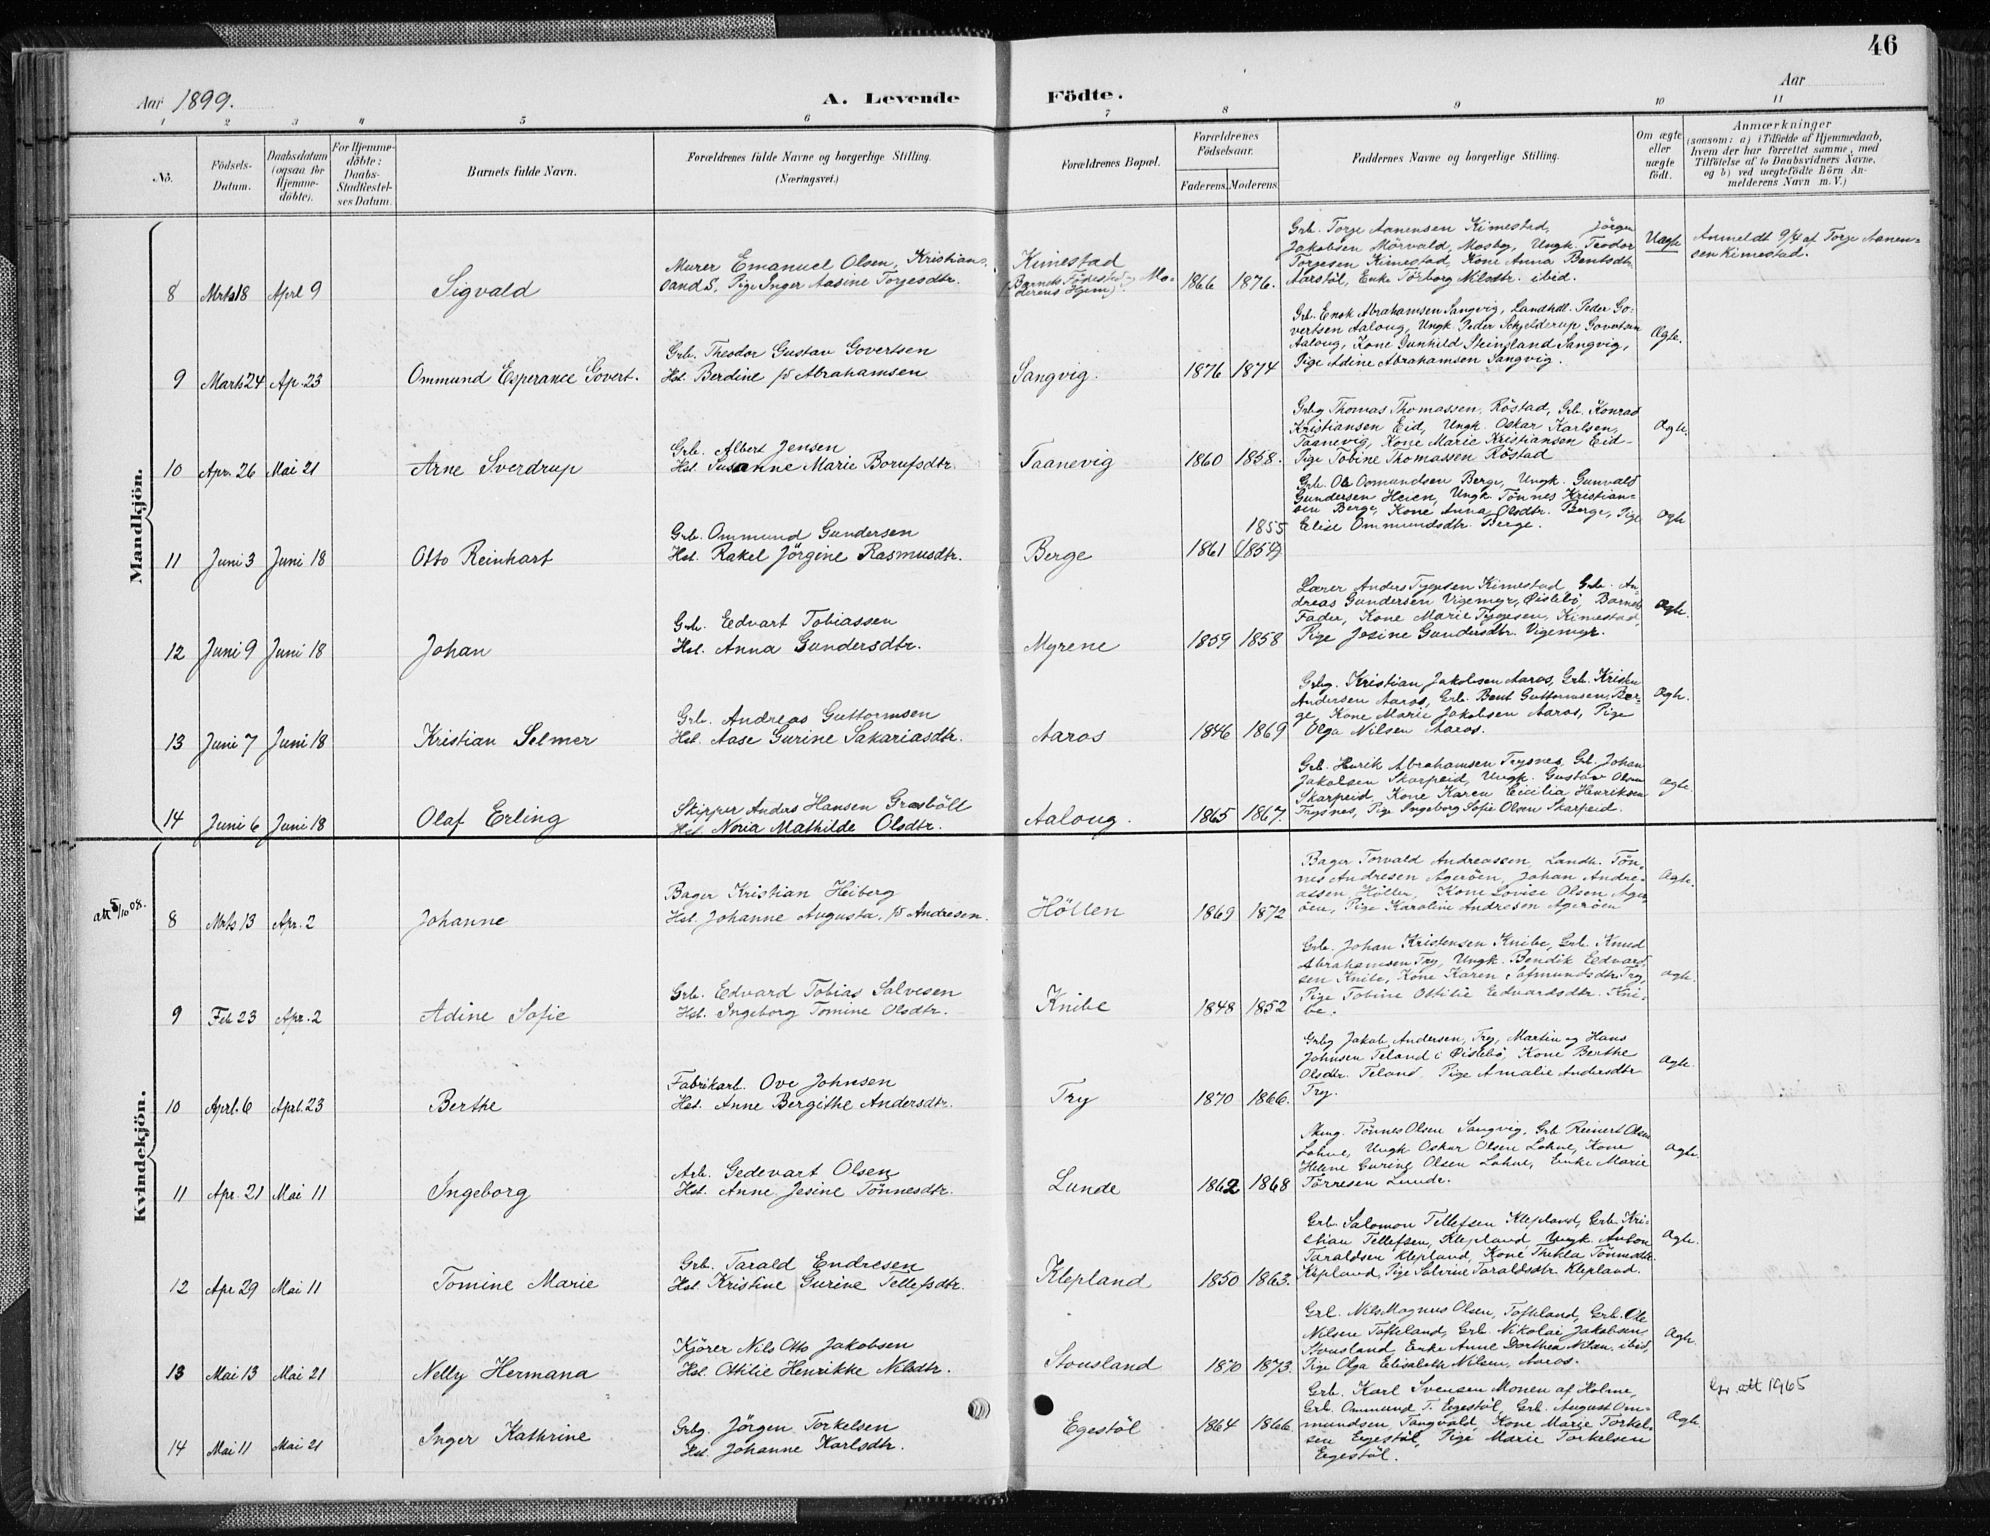 46
Aar 1899.
A. Levende Födte.
Aar
1 2 3 4 5 6 7 8 9 10 11
No.
Födsels-
Datum.
Daabsdatum
(ogsaa for
Hjemme-
döbte).
For Hjemme-
döbte:
Daabs-
Stadfæstel-
ses Datum.
Barnets fulde Navn.
Forældrenes fulde Navne og borgerlige Stilling.
(Næringsvei.)
Forældrenes Bopæl.
Forældrenes
Födselsaar.
Faderens. Moderens.
Faddernes Navne og borgerlige Stilling.
Om ægte
eller
uægte
födt.
Anmærkninger
(saasom: a) i Tilfælde af Hjemmedaab,
hvem der har forrettet samme, med
Tilföielse af to Daabsvidners Navne,
og b) ved uægtefödte Börn An-
melderens Navn m. V.)
Mandkjön.
8 Mrts 18 Aprl 9 Sigvald
Murer Emanuel Olsen, Kristian-
sand S, Pige Inger Aasine Torjesdtr.
Kimestad
(Barnets Fødested og Mo-
derens Hjem).
1866 1876.
Grb. Torje Aanensen Kimestad, Jörgen
Jakobsen Mörvald, Mosby, Ungk. Teodor
Torjesen Kimestad, Kone Anna Bentsdtr.
Aarstöl, Enke Törborg Nilsdtr. ibid.
Uægte
Anmeldt 9/4 af Torje Aanen-
sen Kimestad.
9 Marts 24 Ap. 23 Ommund Esperance Govert.
Grb. Theodor Gustav Govertsen
Hst. Berdine f. Abrahamsen
Sangvig.
1876 1874
Grb. Enok Abrahamsen Sangvig, Landhdl. Peder Go-
vertsen Aaloug, Ungk. Peder Schjelderup Govertsen
Aaloug, Kone Gunhild Steinsland Sangvig,
Pige Adine Abrahamsen Sangvig.
Ægte.
10 Apr. 26 Mai 21 Arne Sverdrup
Grb. Albert Jensen
Hst. Susanne Marie Borufsdtr.
Taanevig
1860 1858.
Grbg Thomas Thomassen, Röstad, Grb. Konrad
Kristiansen Eid, Ungk. Oskar Karlsen,
Taanevig, Kone Marie Kristiansen Eid-
Pige Tobine Thomassen Röstad
Ægte.
11 Juni 3 Juni 18 Otto Reinhart
Grb. Ommund Gundersen
Hst. Rakel Jörgine Rasmusdtr.
Berge
1861 1855
(1854)
Grb. Ole Osmundsen Berge, Ungk. Gunvald
Gundersen Heien, Ungk. Tönnes Kristian-
sen Berge, Kone Anna Olsdtr. Berge, Pige
Elise Ommundsdtr. Berge.
Ægte
12 Juni 9 Juni 18 Johan
Grb. Edvart Tobiassen
Hst. Anna Gundersdtr.
Myrene
1859 1858
Lærer Anders Tygesen Kimestad, Grb. An-
dreas Gundersen Vigemyr, Øislebö, Barnets
Fader, Kone Marie Tygesen, Kimestad,
Pige Josine Gundersdtr. Vigemyr.
Ægte.
13 Juni 7 Juni 18 Kristian Selmer
Grb. Andreas Guttormsen
Hst. Aase Gurine Sakariasdtr.
Aaros
1846 1869
Grbg. Kristian Jakobsen Aaros, Grb. Kristen
Andersen Aaros, Grb. Bent Guttormsen, Ber-
ge, Kone Marie Jakobsen Aaros, Pige
Olga Nilsen Aaros.
Ægte.
14 Juni 6 Juni 18 Olaf Erling
Skipper Anders Hansen Græsböll
Hst. Noria Mathilde Olsdtr.
Aaloug.
1865 1867.
Grb. Henrik Abrahamsen Trysnes, Grb. Johan
Jakobsen Skarpeid, Ungk. Gustav Olsen
Skarpeid, Kone Karen Cecilia Henriksen
Trysnes, Pige Ingeborg Sofie Olsen Skarpeid.
Ægte.
Kvindekjön.
att 5/10 08.
8 Mrts 13 Apr. 2 Johanne
Bager Kristian Heiberg
Hst. Johanne Augusta, f. Andresen.
Höllen
1869 1872
Bager Torvald Andreassen, Landh. Tön-
nes Andresen Ageröen, Johan Andre-
assen, Höllen, Kone Lovise Olsen, Ager-
öen, Pige Karoline Andresen Ageröen
Ægte.
9 Feb 23 Apr. 2 Adine Sofie
Grb. Edvard Tobias Salvesen
Hst. Ingeborg Tomine Olsdtr.
Knibe
1848 1852
Grb. Johan Kristensen Knibe, Grb. Knud
Abrahamsen Try, Ungk. Bendik Edvard-
sen Knibe, Kone Karen Try,
Pige Tobine Ottilie Edvardsdtr. Kni-
be.
Ægte.
10 Aprl. 6 Aprl. 23 Berthe
Fabrikarb. Ove Johnsen
Hst. Anne Bergithe Andersdtr.
Try
1870 1866.
Grbg Jakob Andersen, Try, Martin og Hans
Johnsen Teland i Øislebö, Kone Berthe
Olsdtr. Teland, Pige Amalie Andersdtr
Try.
Ægte.
11 Apr. 21 Mai 11 Ingeborg
Arb. Gedevart Olsen
Hst. Anne Jesine Tönnesdtr.
Lunde
1862 1868
Tönnes Olsen Sangvig, Grb. Reinert Olsen
Lohne, Ungk. Oskar Olsen Lohne, Kone
Helene Gurine Olsen Lohne, Enke Marie
Törresen Lunde.
Ægte.
12 Apr 29 Mai 11 Tomine Marie
Grb. Tarald Endresen
Hst. Kristine Gurine Tellefsdtr.
Klepland
1850 1863.
Grb. Salomon Tellefsen Klepland, Grb. Kri-
stian Tellefsen, Klepland, Ungk. Anton
Taraldsen Klepland, Kone Thekla Tönnesdtr.
Klepland, Pige Salvine Taraldsdtr. Klepland.
Ægte.
13 Mai 13 Mai 21 Nelly Hermana
Kjörer Nils Otto Jakobsen
Hst. Ottilie Henrikke Nilsdtr.
Stousland
1870 1873.
Grb. Nils Magnus Olsen, Tofteland, Grb. Ole
Nilsen Tofteland, Grb. Nikolai Jakobsen,
Stousland, Enke Anne Dorthea Nilsen, ibid,
Pige Olga Elisabeth Nilsen, Aaros.
Ægte.
14 Mai 11 Mai 21 Inger Kathrine
Grbg. Jörgen Torkelsen
Hst. Johanne Karlsdtr.
Egestöl
1864 1866.
Grb. Karl Svensen Monen af Holme,
Grb. Ommund T. Egestöl, Grb. August Om-
mundsen Tangvald, Kone Marie Torkel-
sen Egestöl, Pige Marie Torkelsen
Egestöl.
Ægte.
att 1965